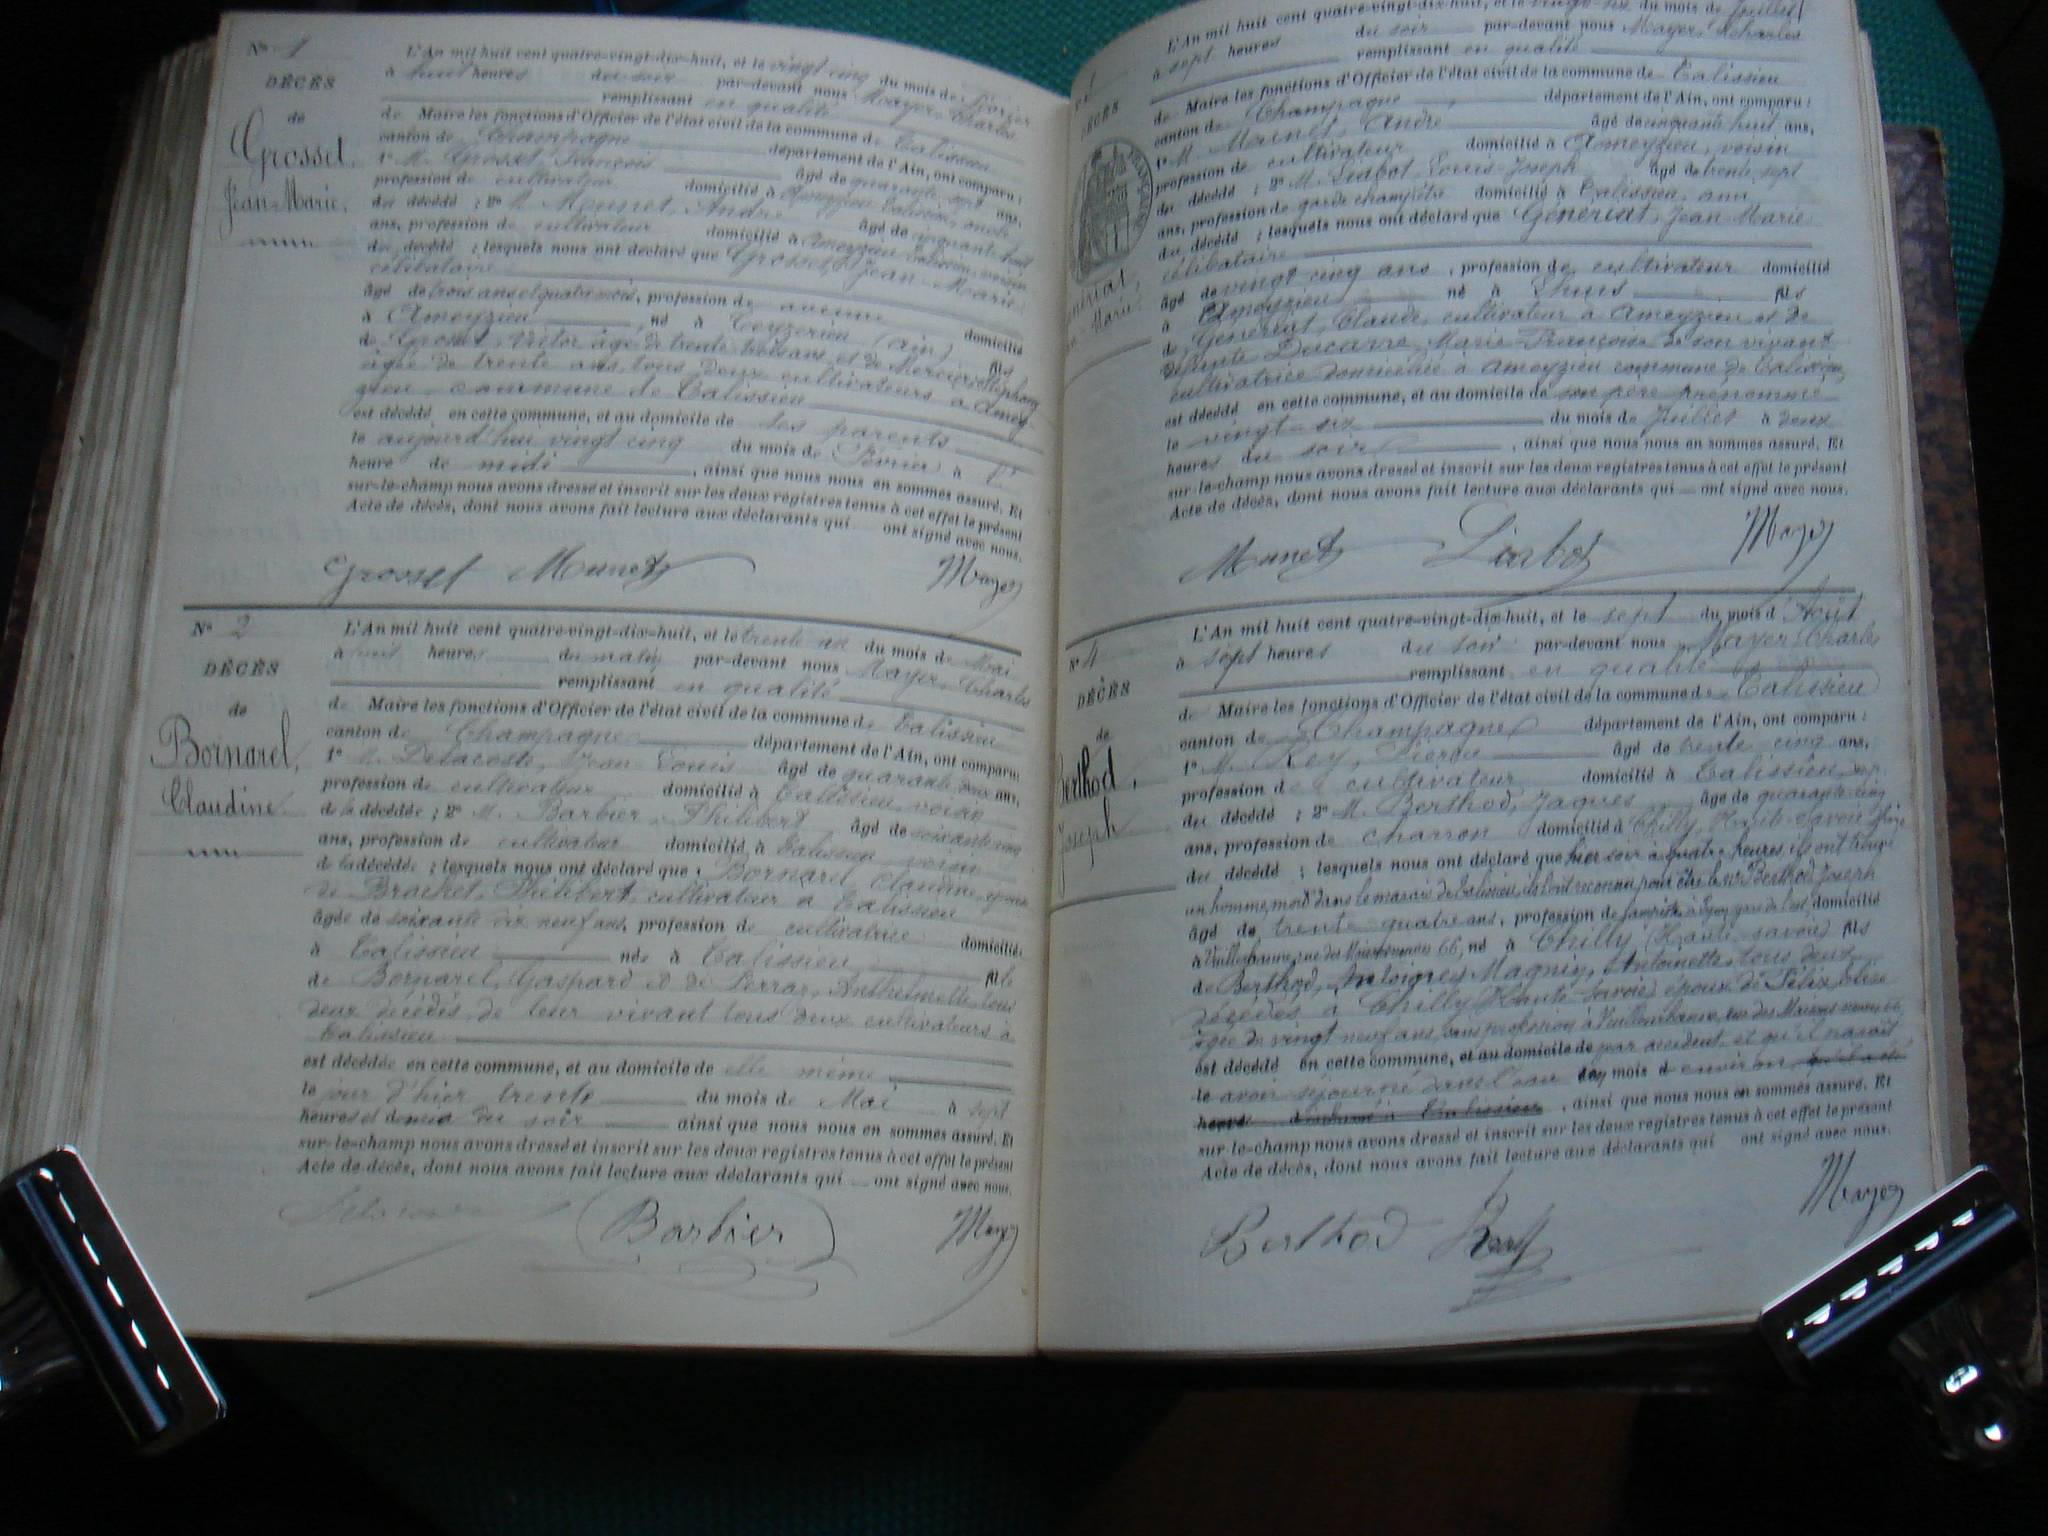 N° 1
DÉCÈS
de
Grosset,
Jean-Marie.
L'An mil huit cent quatre-vingt-dix-huit, et le vingt cinq du mois de Février
à huit heures du soir par-devant nous Mayer, Charles
remplissant en qualité
de Maire les fonctions d'Officier de l'état civil de la commune de Talissieu
canton de Champagne département de l'Ain, ont comparu :
1° M. Grosset, François âgé de quarante sept ans,
profession de cultivateur domicilié à Ameyzieu Talissieu, oncle
du décédé ; 2° M. Monnet, André âgé de cinquante huit
ans, profession de cultivateur domicilié à Ameyzieu Talissieu, voisin
du décédé ; lesquels nous ont déclaré que Grosset, Jean-Marie
célibataire
âgé de trois ans et quatre mois, profession de aucune domicilié
à Ameyzieu, né à Ceyzérieu (Ain) fils
de Grosset, Victor âgé de trente trois ans, et de Mercier,
âgée de trente ans, tous deux cultivateurs à Amey-
zieu, commune de Talissieu
est décédé en cette commune, et au domicile de ses parents
le aujourd'hui vingt cinq du mois de Février à
heure de midi, ainsi que nous nous en sommes assuré. Et
sur-le-champ nous avons dressé et inscrit sur les deux registres tenus à cet effet le présent
Acte de décès, dont nous avons fait lecture aux déclarants qui ont signé avec nous.
Grosset Munet Mayer
N° 2
DÉCÈS
de
Bornarel,
Claudine.
L'An mil huit cent quatre-vingt-dix-huit, et le trente un du mois de Mai
à huit heures du matin par-devant nous Mayer, Charles
remplissant en qualité
de Maire les fonctions d'Officier de l'état civil de la commune de Talissieu
canton de Champagne département de l'Ain, ont comparu :
1° M. Delacoste, Jean-Louis âgé de quarante deux ans,
profession de cultivateur domicilié à Talissieu, voisin
de la décédée ; 2° M. Barbier, Philibert âgé de soixante cinq
ans, profession de cultivateur domicilié à Talissieu voisin
de la décédée ; lesquels nous ont déclaré que Bornarel, Claudine, épouse
de Brochet, Philibert, cultivateur à Talissieu
âgée de soixante dix neuf ans, profession de cultivatrice domiciliée
à Talissieu née à Talissieu fille
de Bornarel, Gaspard et de Perrar, Anthelmette, tous
deux décédés, de leur vivant tous deux cultivateurs à
Talissieu
est décédée en cette commune, et au domicile de elle même
le jour d'hier trente du mois de Mai à sept
heures et demie du soir ainsi que nous nous en sommes assuré. Et
sur-le-champ nous avons dressé et inscrit sur les deux registres tenus à cet effet le présent
Acte de décès, dont nous avons fait lecture aux déclarants qui ont signé avec nous.
Barbier Mayer
DÉCÈS
FRANÇAISE
Marie
L'An mil huit cent quatre-vingt-dix-huit, et le vingt-six du mois de Juillet
à sept heures du soir par-devant nous Mayer, Charles
remplissant en qualité
de Maire les fonctions d'Officier de l'état civil de la commune de Talissieu
canton de Champagne, département de l'Ain, ont comparu :
1° M. Munet, André âgé de cinquante huit ans,
profession de cultivateur domicilié à Ameyzieu, voisin
du décédé ; 2° M. Liabot, Louis-Joseph âgé de trente sept
ans, profession de garde champêtre domicilié à Talissieu, ami
du décédé ; lesquels nous ont déclaré que Génériat, Jean-Marie
célibataire
âgé de vingt cinq ans, profession de cultivateur domicilié
à Ameyzieu né à Lhuis fils
de Génériat, Claude, cultivateur à Ameyzieu et de
défunte Ducarre, Marie-Françoise de son vivant
cultivatrice domiciliée à Ameyzieu commune de Talissieu
est décédé en cette commune, et au domicile de son père prénommé
le vingt-six du mois de Juillet à deux
heures du soir, ainsi que nous nous en sommes assuré. Et
sur-le-champ nous avons dressé et inscrit sur les deux registres tenus à cet effet le présent
Acte de décès, dont nous avons fait lecture aux déclarants qui ont signé avec nous.
Munet Liabot Mayer
N° 4
DÉCÈS
de
Berthod,
Joseph
L'An mil huit cent quatre-vingt-dix-huit, et le sept du mois d'Août
à sept heures du soir par-devant nous Mayer Charles
remplissant en qualité
de Maire les fonctions d'Officier de l'état civil de la commune de Talissieu
canton de Champagne département de l'Ain, ont comparu :
1° M. Rey, Pierre âgé de trente cinq ans,
profession de cultivateur domicilié à Talissieu,
du décédé ; 2° M. Berthod, Jaques âgé de quarante cinq
ans, profession de charron domicilié à Chilly, Haute-Savoie frère
du décédé ; lesquels nous ont déclaré que hier soir à quatre heures, ils ont trouvé
un homme, mort dans le marais de Talissieu, ils l'ont reconnu pour être le Sr Berthod Joseph
âgé de trente quatre ans, profession de à Lyon gare de l'est, domicilié
à Villeurbanne, rue des Maisons neuves 66, né à Chilly (Haute savoie) fils
de Berthod, et Magnin, Antoinette, tous deux
décédés à Chilly (Haute-Savoie) époux de Félix, Elise
âgée de vingt neuf ans, sans profession à Villeurbanne, rue des Maisons neuves 66,
est décédé en cette commune, et au domicile de par accident et qu'il paraît
le avoir séjourné dans l'eau mois environ
heures Talissieu, ainsi que nous nous en sommes assuré. Et
sur-le-champ nous avons dressé et inscrit sur les deux registres tenus à cet effet le présent
Acte de décès, dont nous avons fait lecture aux déclarants qui ont signé avec nous.
Berthod Rey Mayer